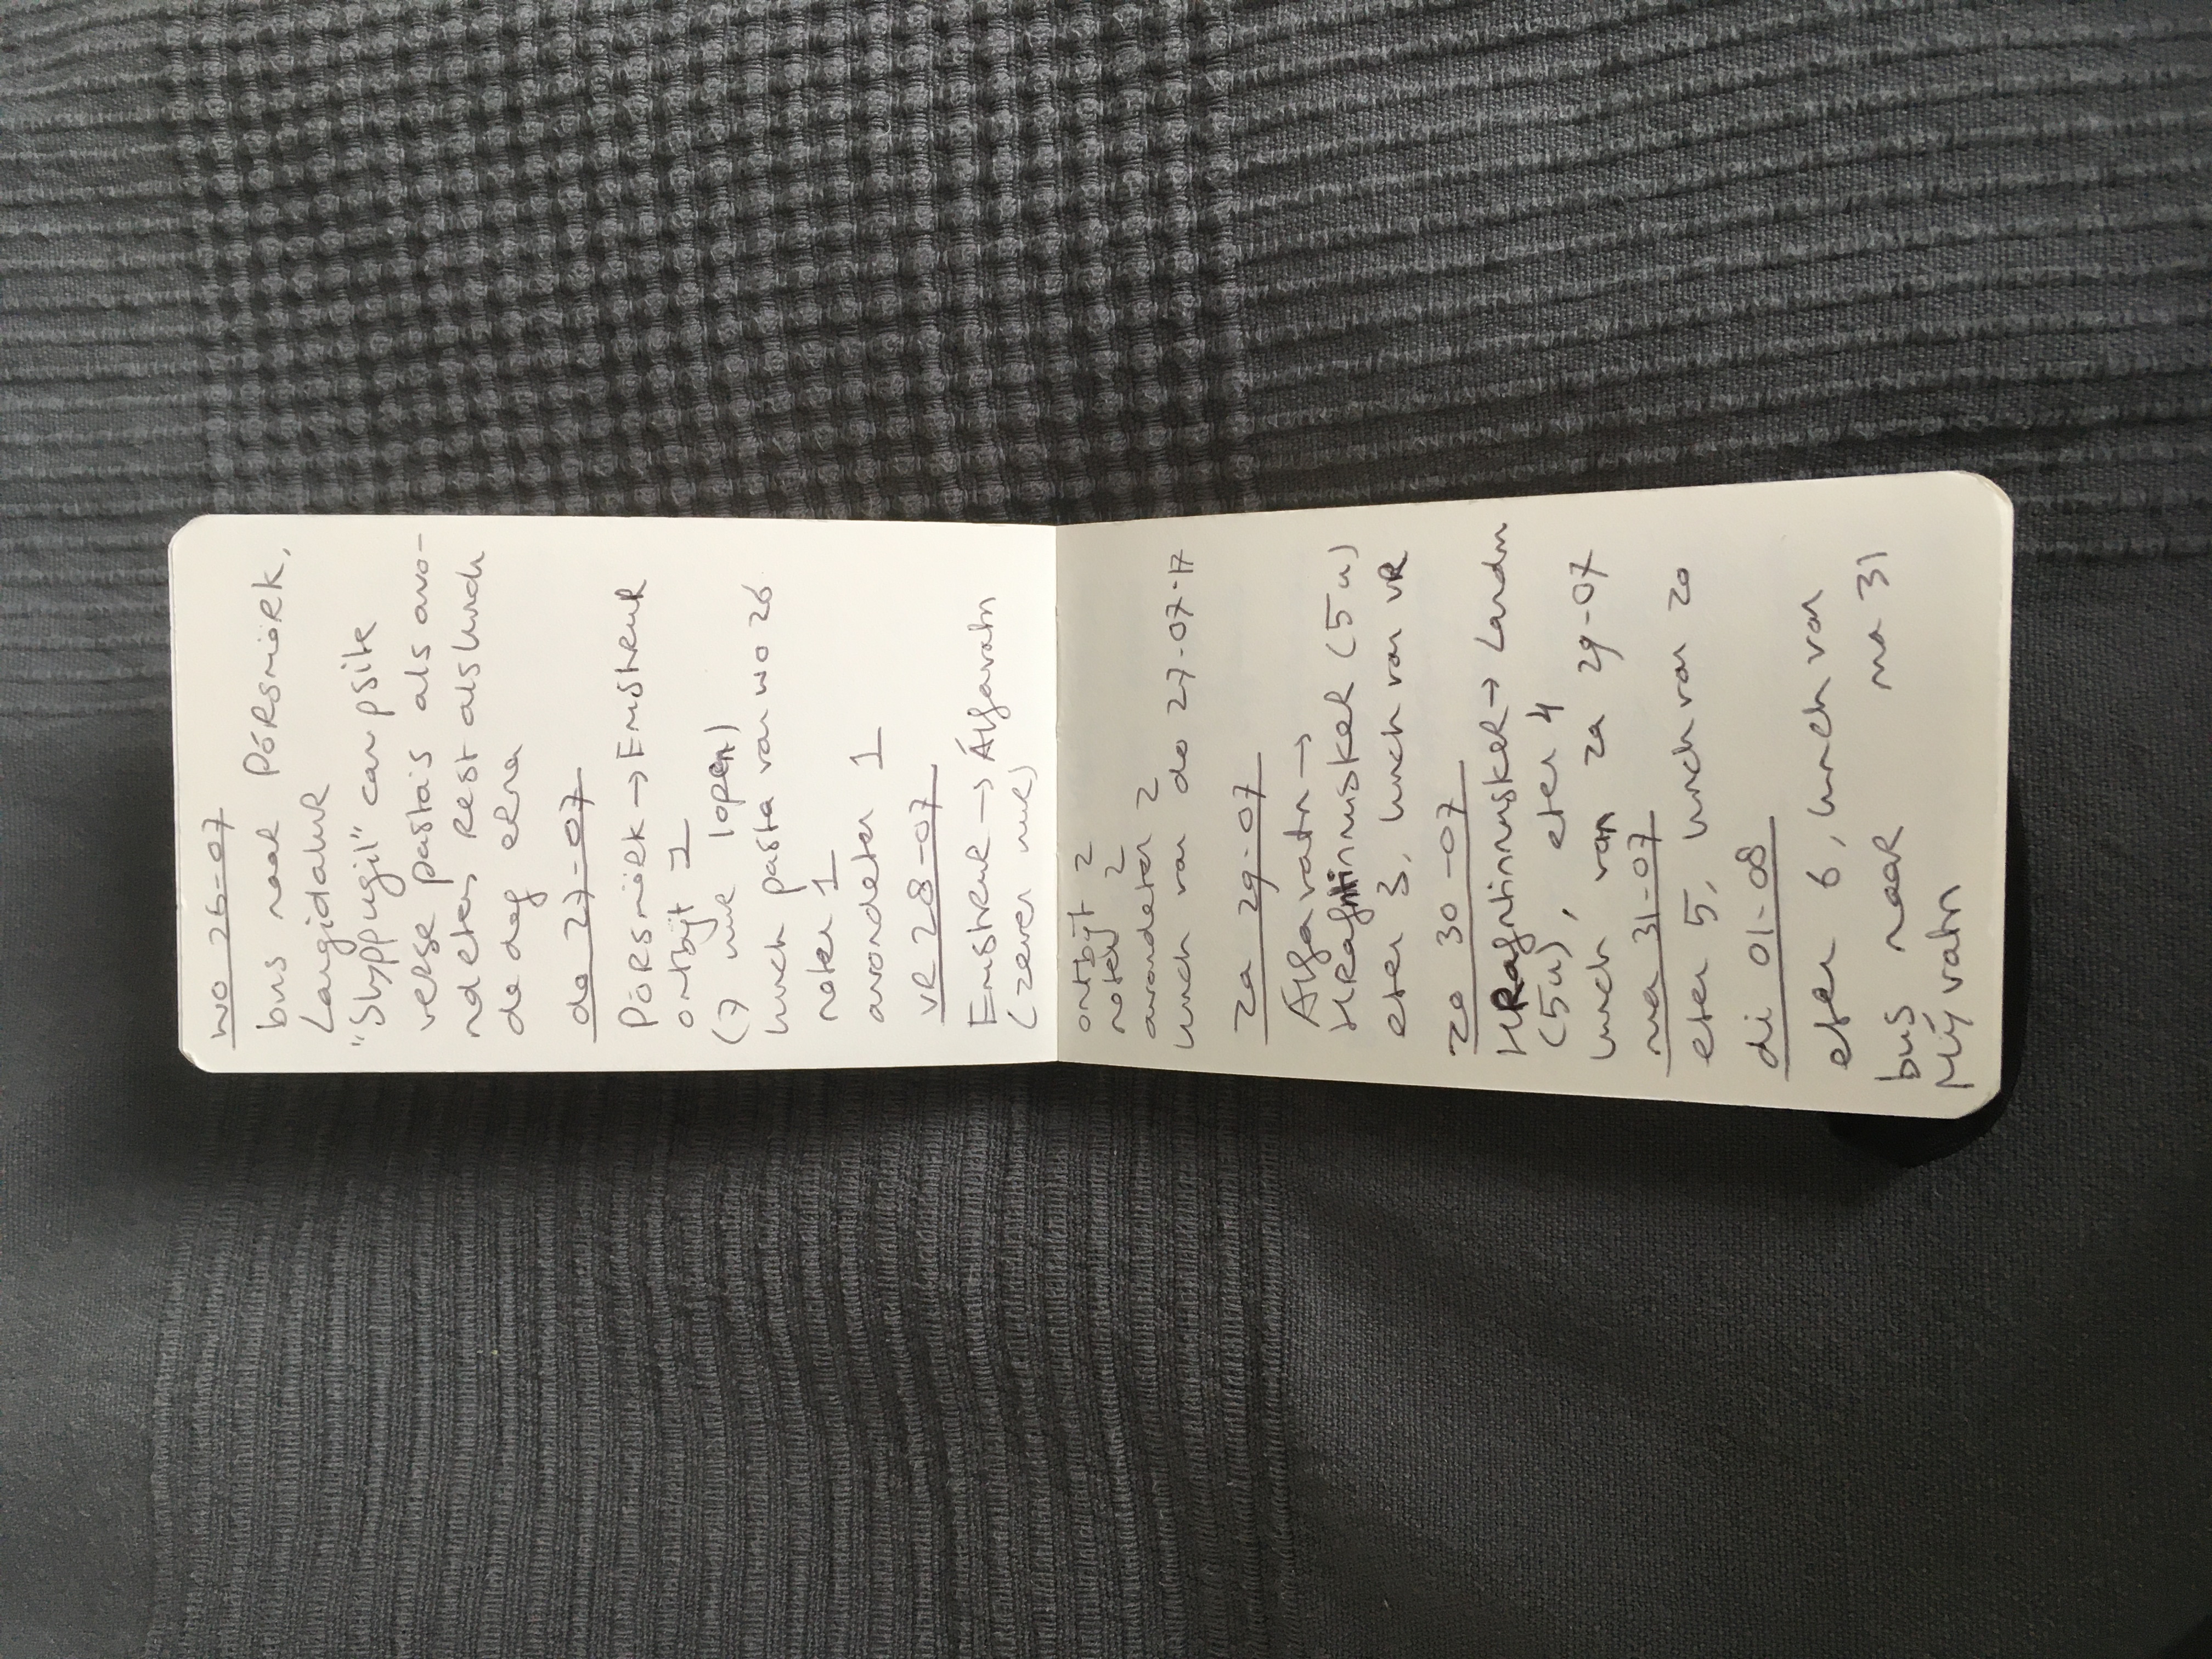 wo 26-07
bus naar Þórsmörk,
Langidalur
"Slyppugil" campsite
verse pasta's als avo-
ndeten, rest als lunch
de dag erna
do 27-07
Þórsmörk → Emstrur
ontbijt 1
(7 uur lopen)
lunch pasta van wo 26
noten 1
avondeten 1
vr 28-07
Emstrur → Álftavatn
(zeven uur)
ontbijt 2
noten 2
avondeten 2
lunch van do 27-07-17
za 29-07
Álftavatn →
Hrafntinnusker (5u)
eten 3, lunch van vr
zo 30-07
Hrafntinnusker → Landm
(5u), eten 4
lunch van za 29-07
ma 31-07
eten 5, lunch van zo
di 01-08
eten 6, lunch van
ma 31
bus naar
Mývatn